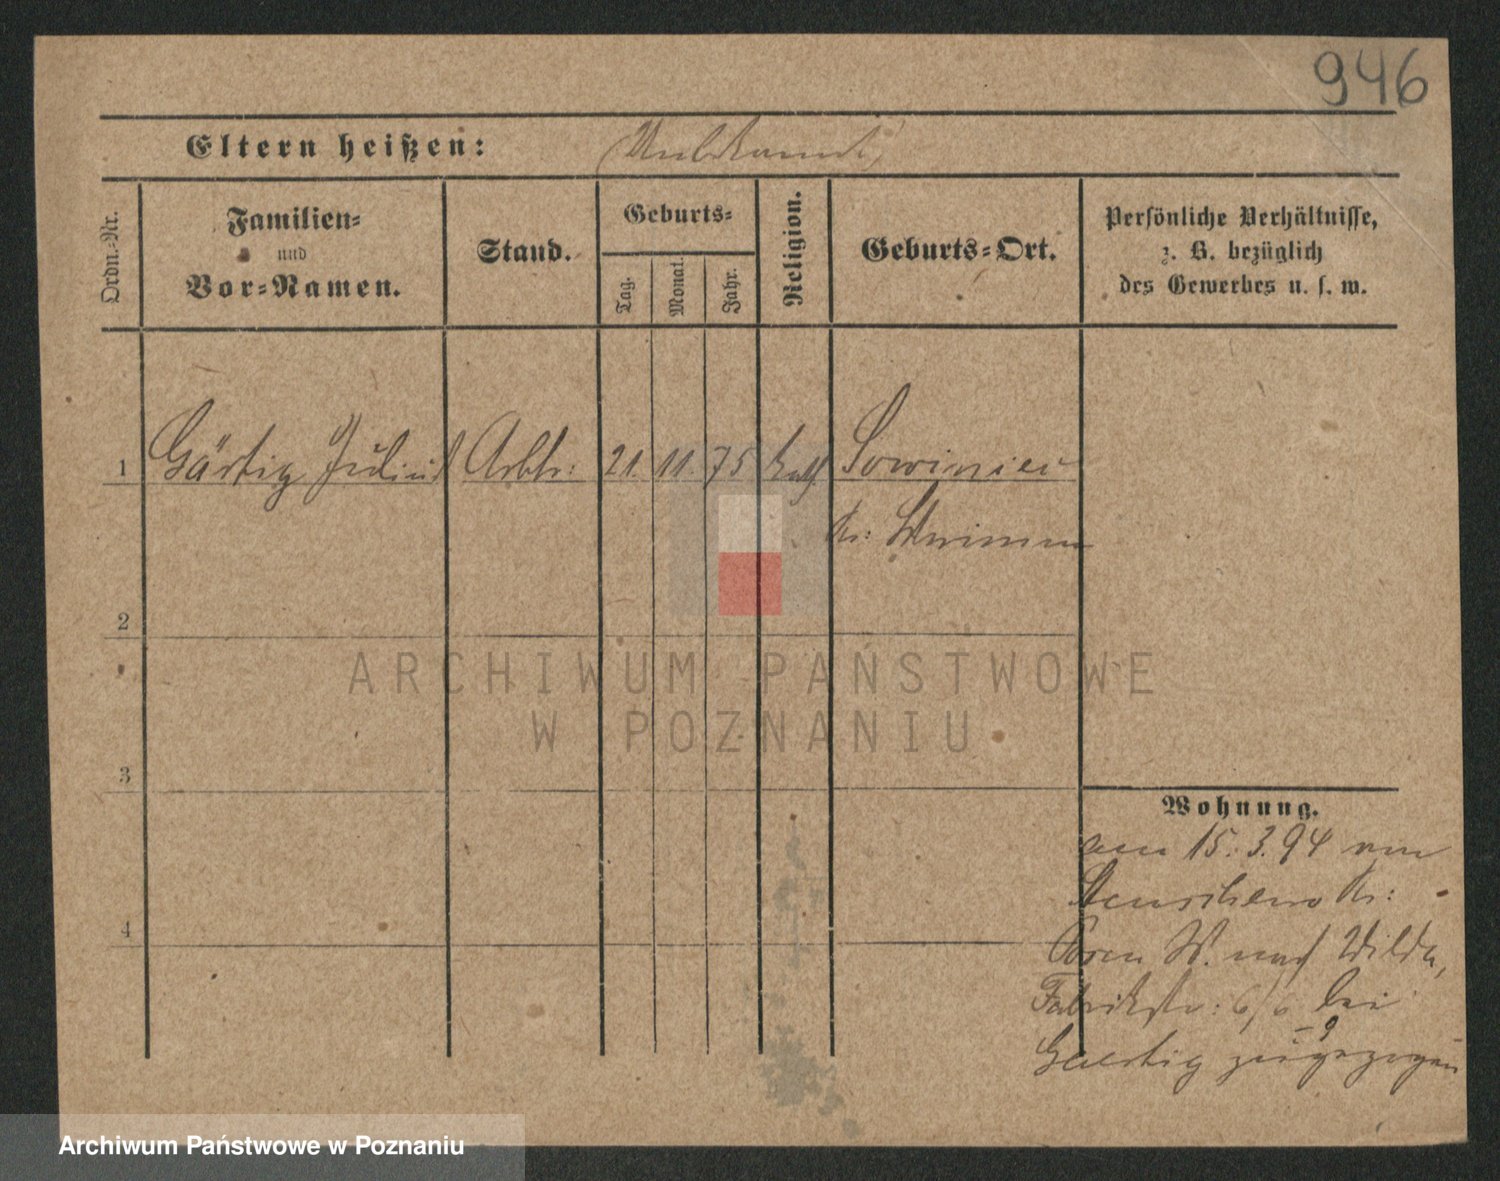 946
Eltern heißen: Unbekannt,
Ordn.-Nr.
Familien-
und
Vor-Namen.
Stand.
Geburts-
Tag.
Monat.
Jahr.
Religion.
Geburts-Ort.
Persönliche Verhältnisse,
z. B. bezüglich
des Gewerbes u. s. w.
1 Gärtig Julius Arbtr: 21. 11. 75 kath. Sowiniec
Kr: Schrimm
2
ARCHIWUM PAŃSTWOWE
W POZNANIU
3
Wohnung.
am 15. 3. 94 von
Kr:
4
Posen W. nach Wilda,
Fabrikstr: 6/6 bei
Gaertig zugezogen
Archiwum Państwowe w Poznaniu